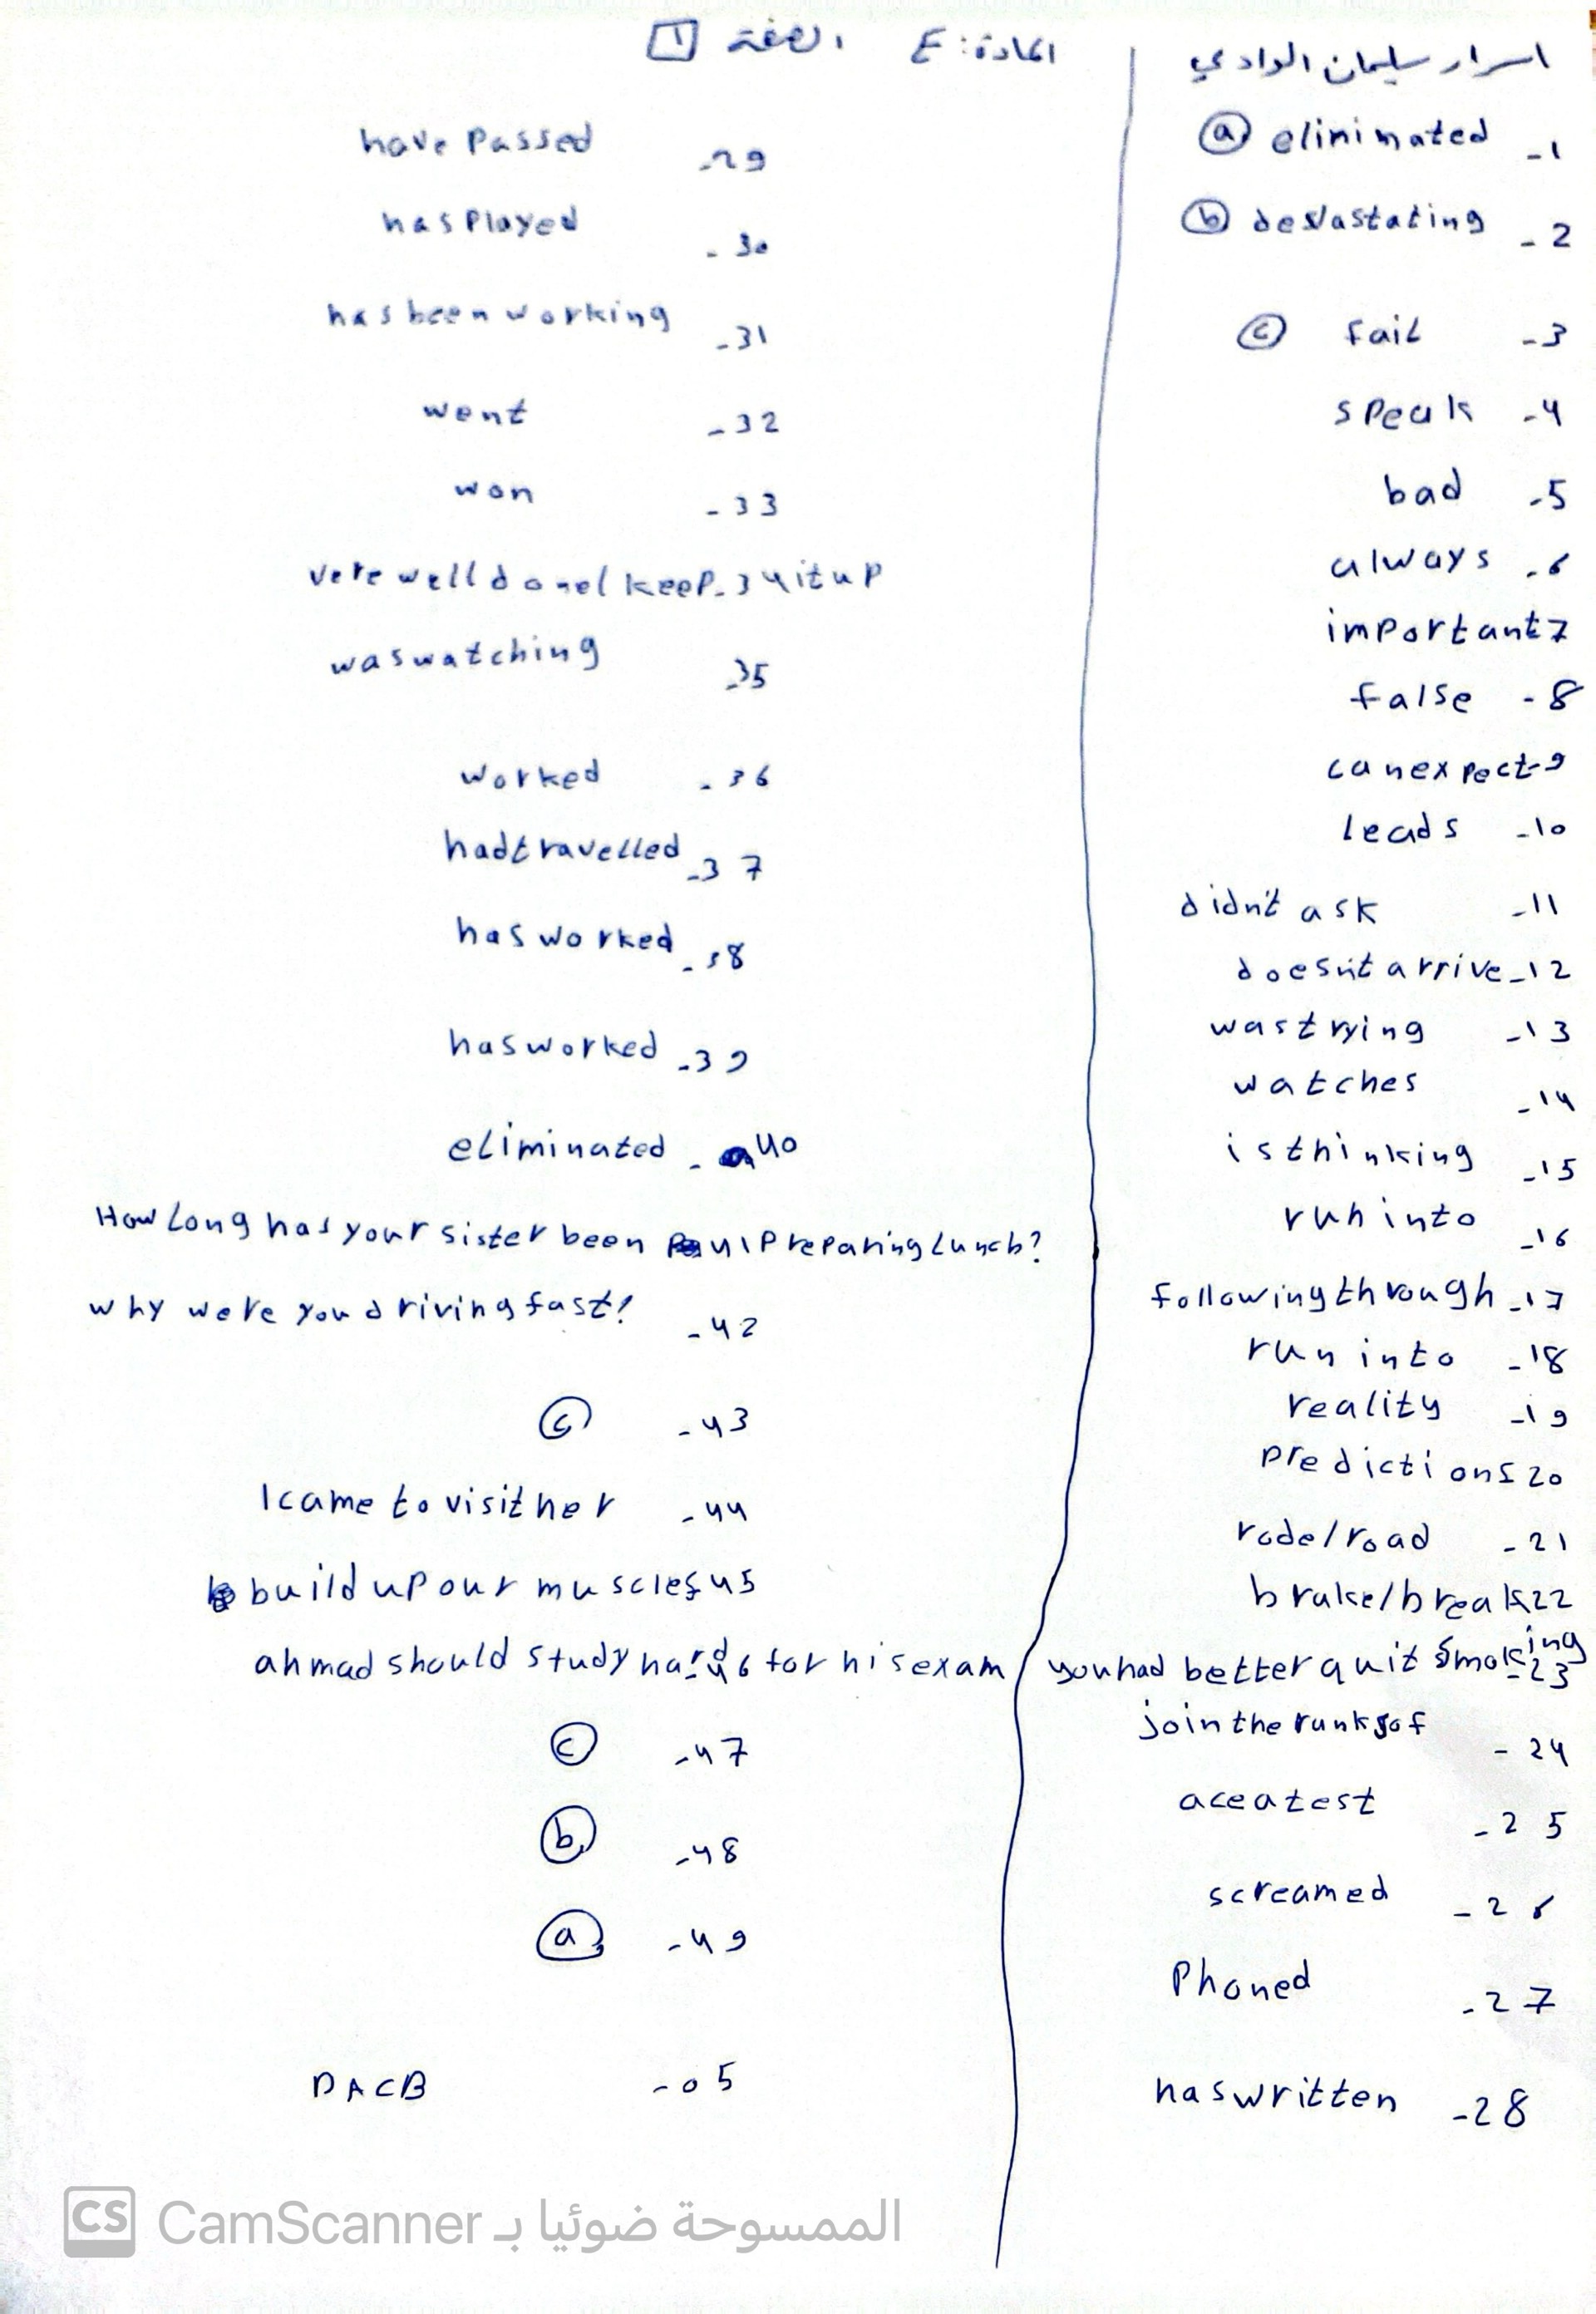 اسرار سليمان الوادي
المادة: E الصفة 1
ⓐ eliminated -1
ⓑ devastating -2
ⓒ fail -3
speak -4
bad -5
always -6
important 7
false -8
can expect -9
leads -10
didn't ask -11
doesn't arrive -12
was trying -13
watches -14
is thinking -15
run into -16
following through -17
run into -18
reality -19
predictions 20
rode/road -21
brake/break 22
you had better quit smoking -23
join the ranks of -24
ace a test -25
screamed -26
Phoned -27
has written -28
have passed -29
has played -30
has been working -31
went -32
won -33
vere well done! keep -34 it up
was watching -35
worked -36
had travelled -37
has worked -38
has worked -39
eliminated -40
How long has your sister been 41 preparing lunch?
why were you driving fast! -42
ⓒ -43
I came to visit her -44
build up our muscles 45
ahmad should study hard 46 for his exam
ⓒ -47
ⓑ -48
ⓐ -49
DACB -05
CS CamScanner الممسوحة ضوئيا بـ